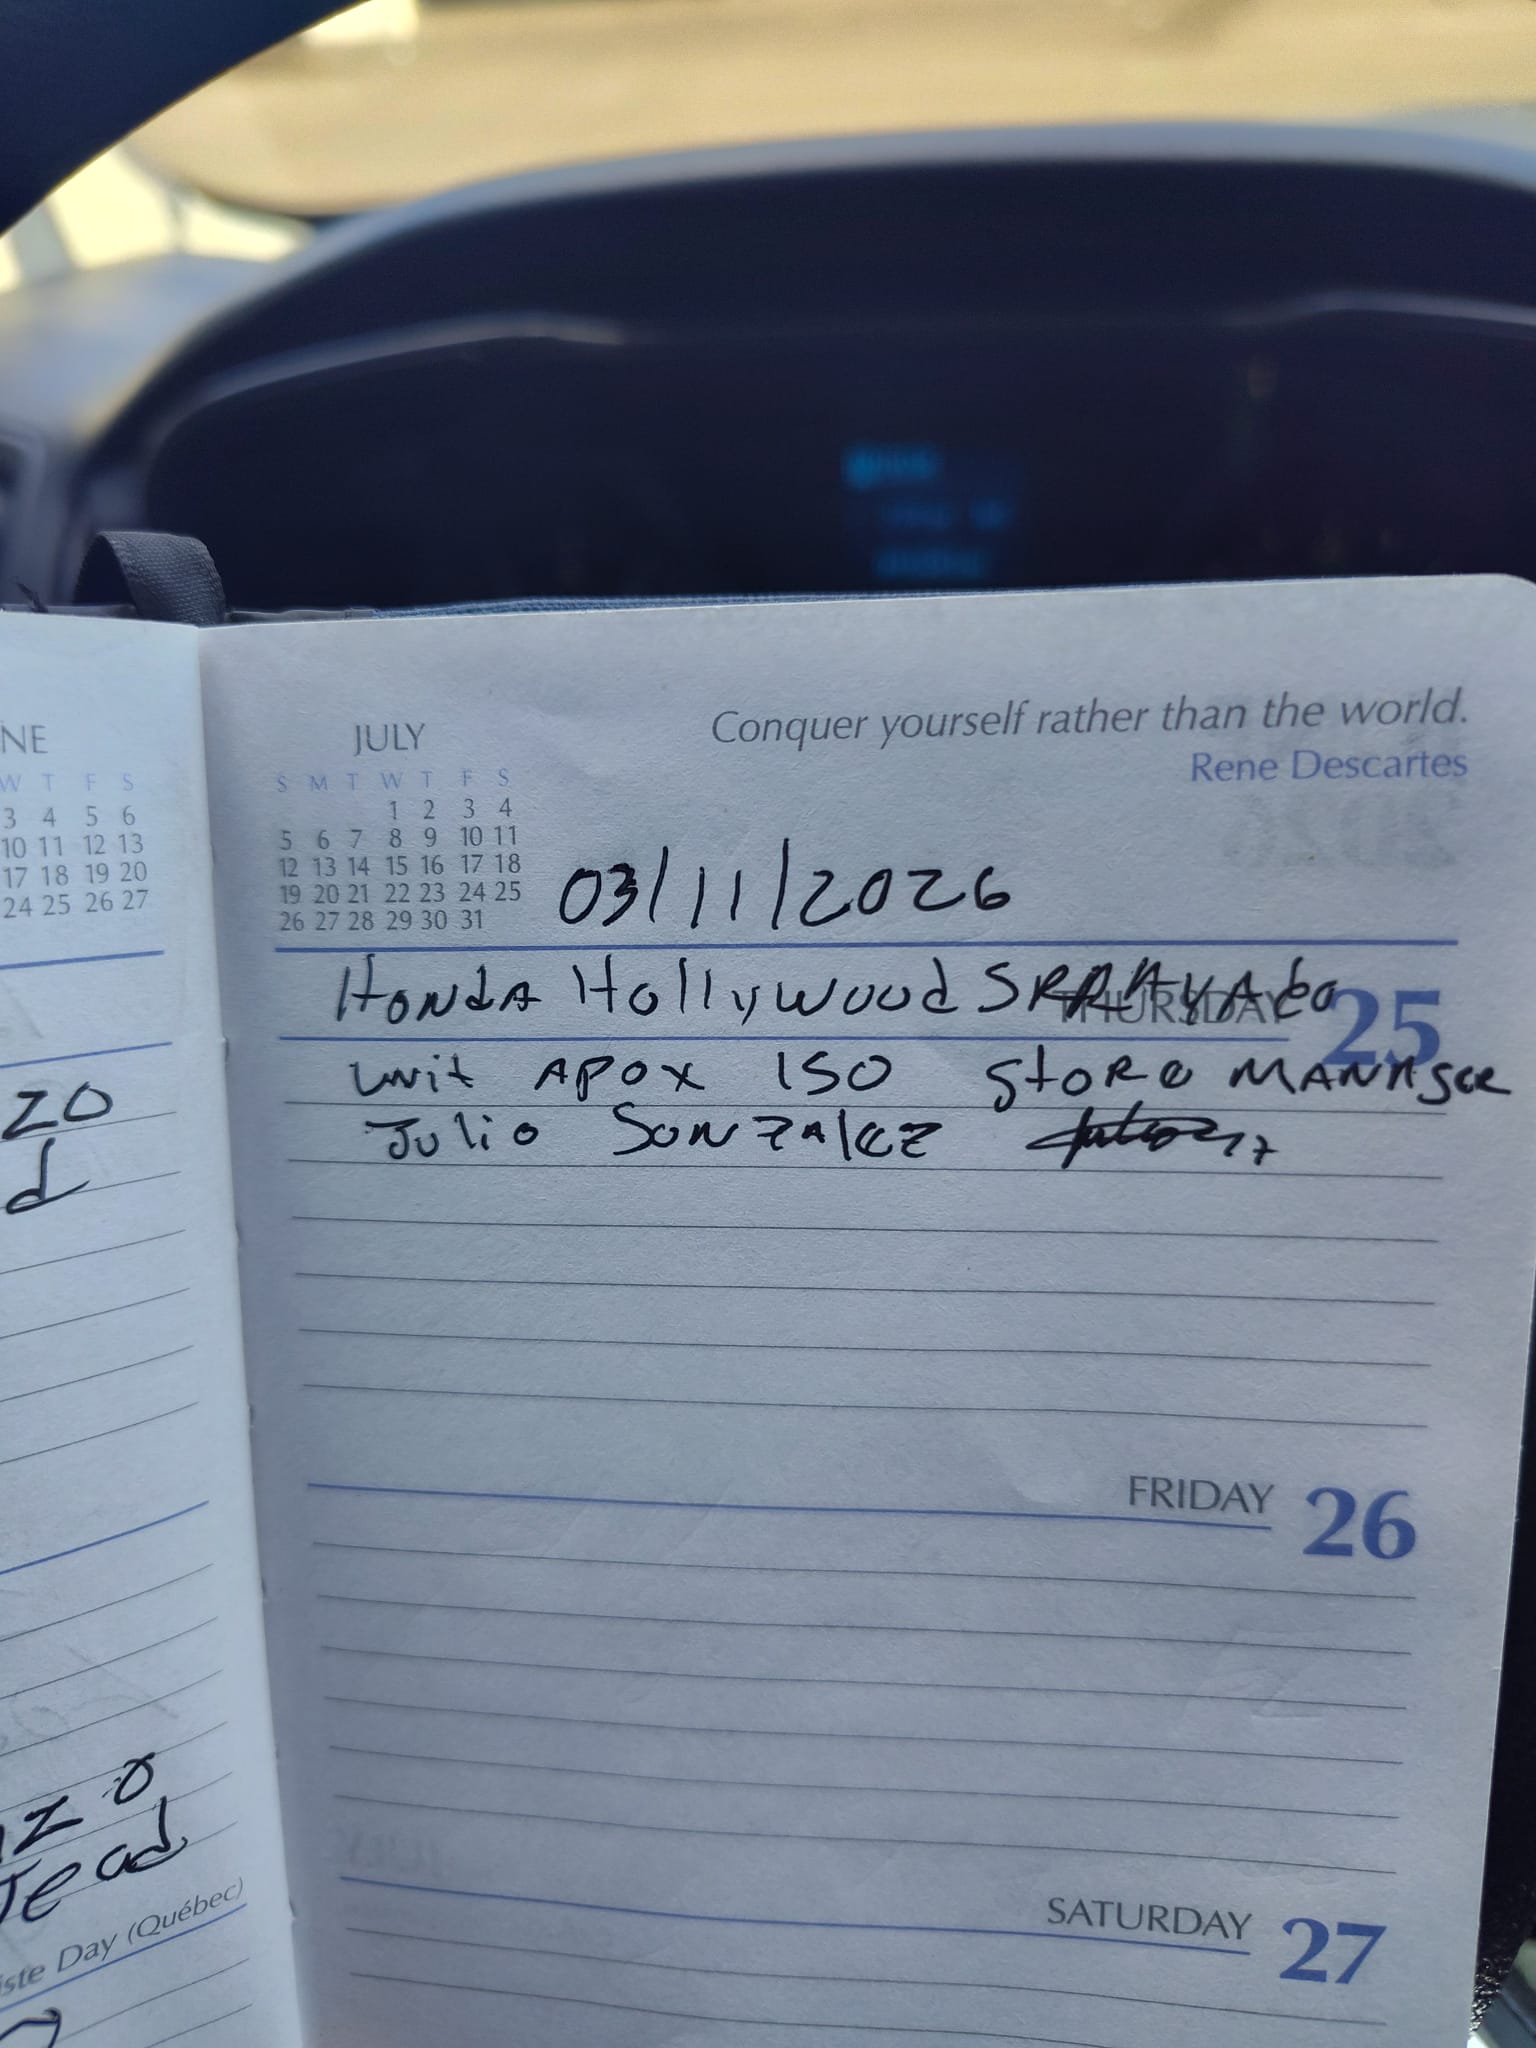 NE
W T F S
3 4 5 6
10 11 12 13
17 18 19 20
24 25 26 27
zo
d
zo
ead
iste Day (Québec)
JULY
S M T W T F S
1 2 3 4
5 6 7 8 9 10 11
12 13 14 15 16 17 18
19 20 21 22 23 24 25
26 27 28 29 30 31
Conquer yourself rather than the world.
Rene Descartes
03/11/2026
Honda Hollywood
THURSDAY 25
unit APOX 150 Store MANAGer
Julio GonzAlez
FRIDAY 26
SATURDAY 27